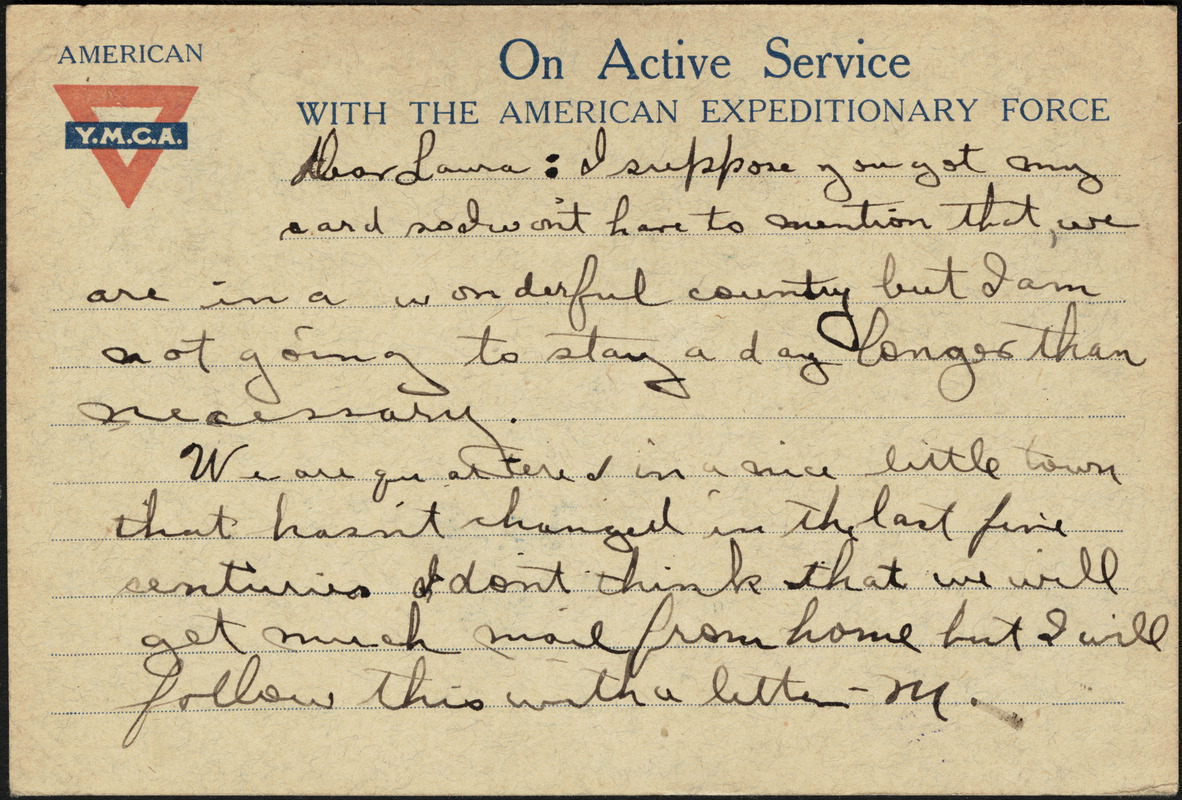 AMERICAN
Y.M.C.A.
On Active Service
WITH THE AMERICAN EXPEDITIONARY FORCE
Dear Laura: I suppose you got my
card so I won't have to mention that, we
are in a wonderful country but I am
not going to stay a day longer than
necessary.
We are quartered in a nice little town
that hasn't changed in the last five
centuries I don't think that we will
get much mail from home but I will
follow this with a letter - M.